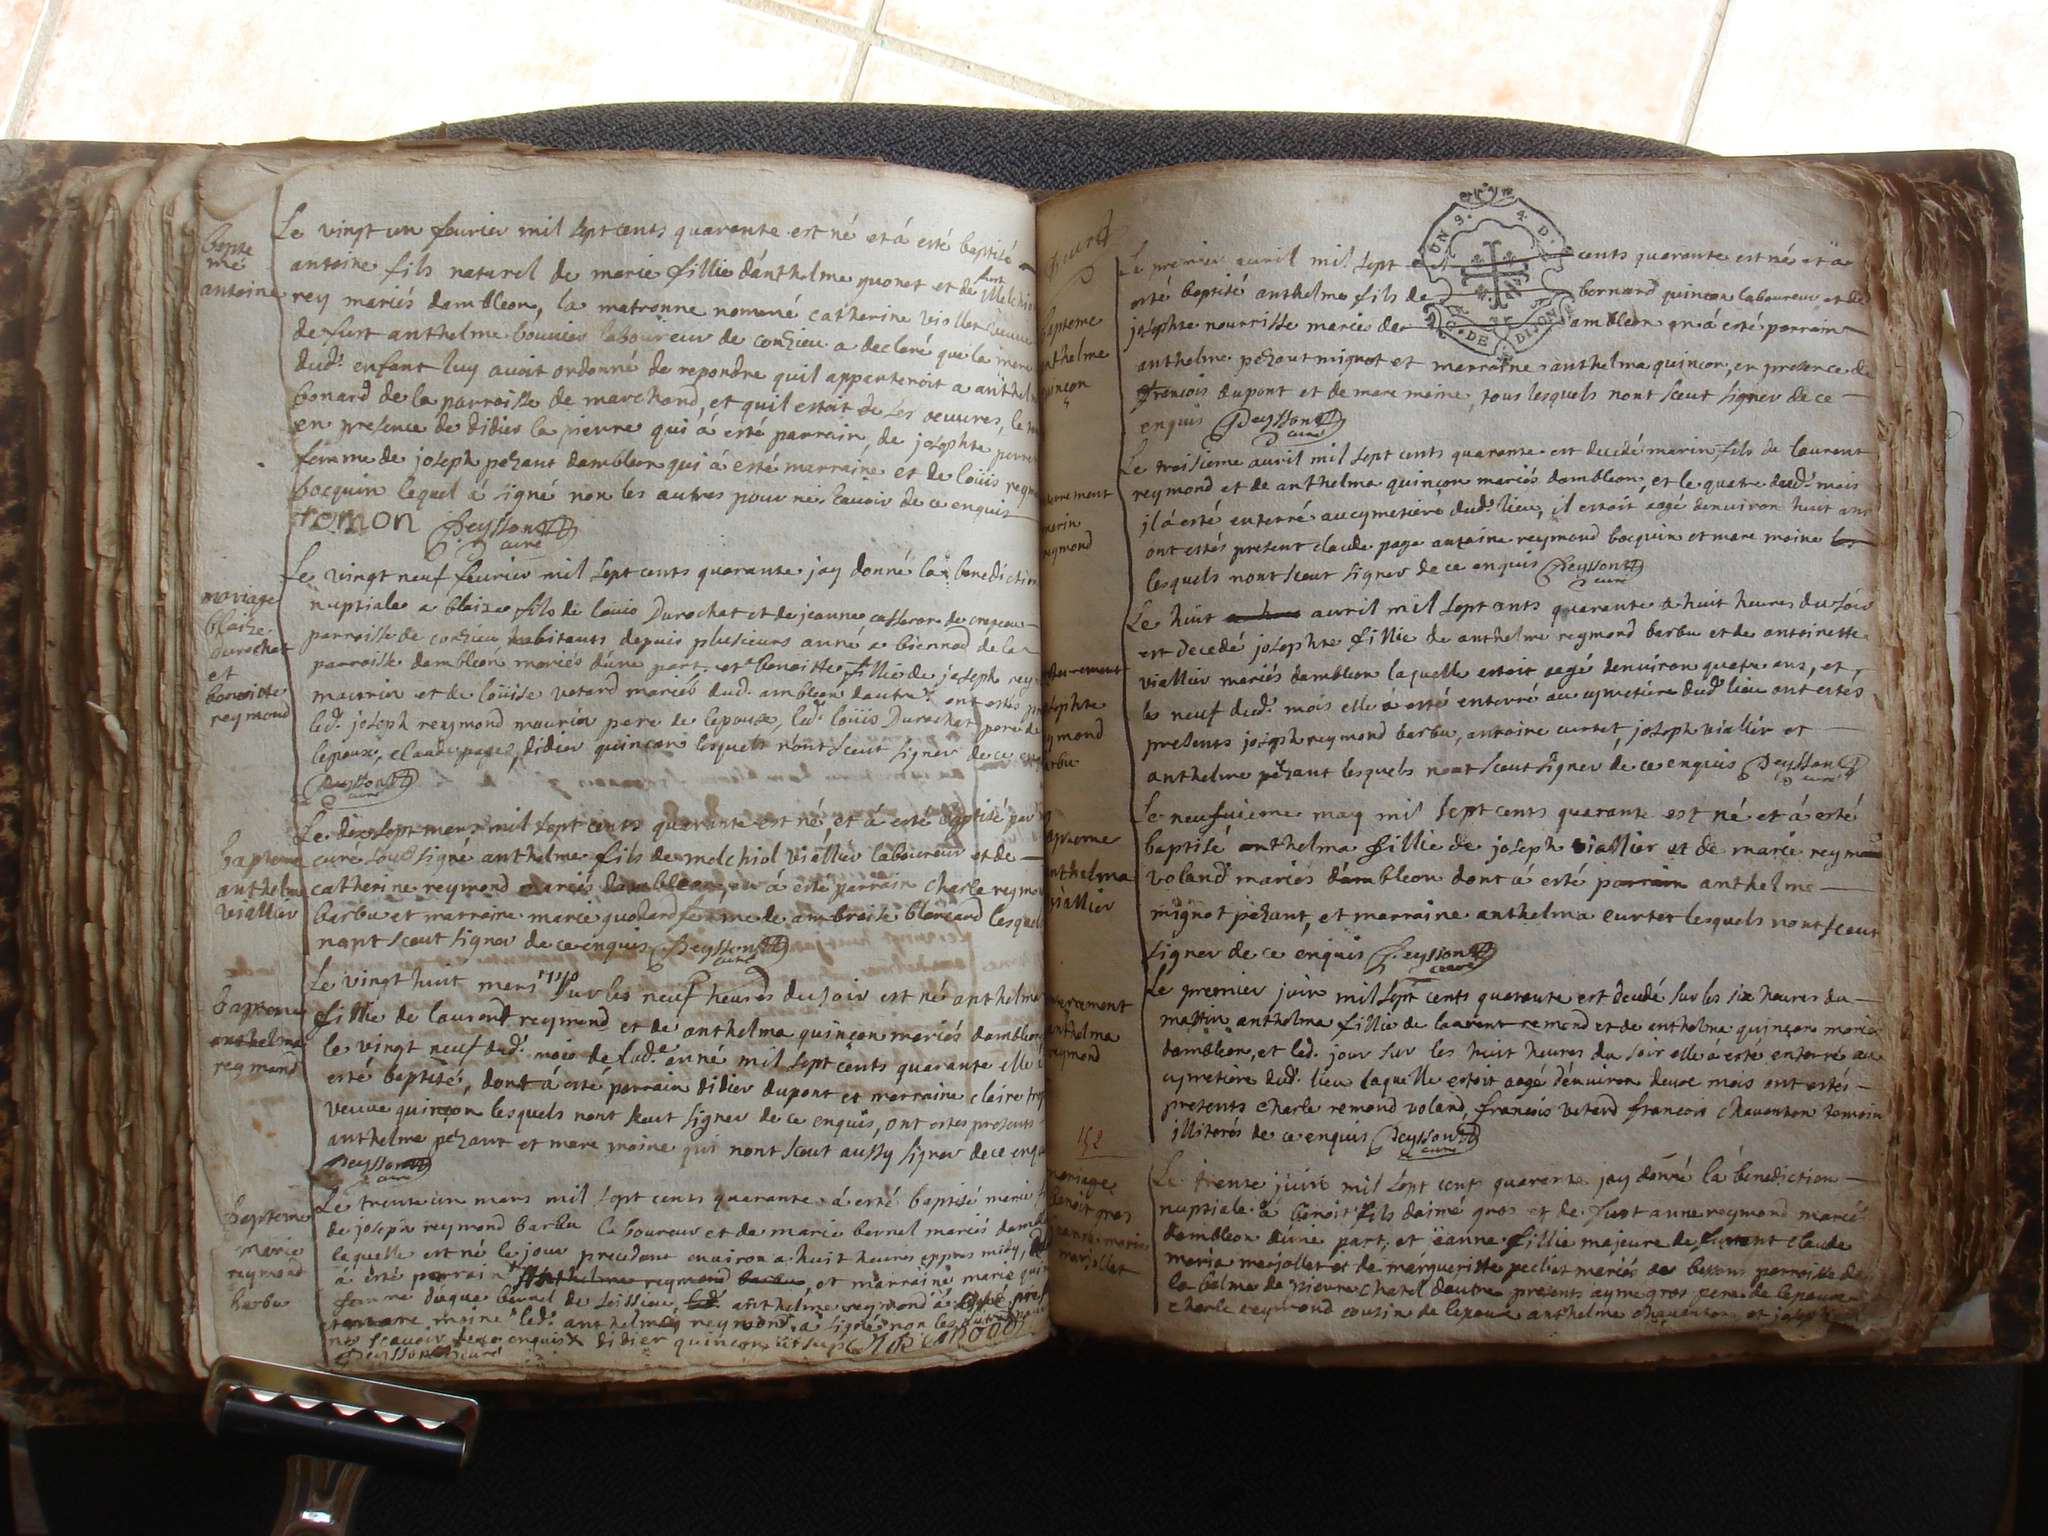 bapte
me
antoine
Le vingt un feurier mil sept cents quarante est né et á esté baptisé
antoine fils naturel de marie fillie d'anthelme quonet et de furt Melchio
rey mariés dambleon, la matronne nommé catherine viollet veuve
de furt anthelme bouvier laboureur de conzieu a declaré que la mere
dud. enfant luy avoit ordonné de repondre quil appartenoit a anthel
bonard de la parroisse de marchand, et quil estoit de ses oeuvres, le
en presence de didier la pierre qui á esté parrain, de josephte
femme de joseph pezant dambleon qui á esté marraine et de loüis reym
bocquin lequel á signé non les autres pour ne scavoir de ce enquis
remon Peysson curé
mariage
blaise
durochat
et
benoitte
reymond
Le vingt neuf feurier mil sept cents quarante jay donné la benediction
nuptiale a blaize fils de louis Durochat et de jeanne
parroisse de conzieu habitants depuis plusieurs anné a biennod de la
parroisse dambleon mariés d'une part, et benoitte fillie de joseph rey
maurin et de loüise vetard mariés dud. ambleon dautre p. ont estés
led. joseph reymond maurin pere de lepouse, led. loüis Durochat pere de
lepoux, claude page, didier quincon lesquels n'ont sceut signer de ce enq
Peysson curé
bapteme
anthelme
viallier
Le dix sept mars mil sept cents quarante est né, et á esté baptisé par
curé soussigné anthelme fils de melchiol viallier laboureur et de
catherine reymond mariés dambleon, en á esté parrain charle reymon
barbu et marraine marie quonard femme de ambroise blancard lesquels
nont sceut signer de ce enquis Peysson curé
bapteme
anthelma
reymond
Le vingt huit mars 1740 sur les neuf heures du soir est né anthelma
fillie de laurent reymond et de anthelma quinçon mariés dambleon
le vingt neuf dud. mois de lad. anné mil sept cents quarante elle á
esté baptisé, dont á esté parrain didier dupont et marraine claire
veuve quinçon lesquels nont sceut signer de ce enquis, ont estes presents
anthelme pezant et marc moine qui nont sceut aussy signer de ce enquis
Peysson curé
bapteme
marie
reymond
barbu
Le trente un mars mil sept cents quarante á esté baptisé marie
de joseph reymond barbu laboureur et de marie bernel mariés dambl
laquelle est né le jour precedent environ a huit heures appres midy,
á esté parrain anthelme reymond barbu, et marraine marie
femme bernel de seissieu, led. anthelme reymond á
et marc moine led. anthelme reymond á signé non les autres
ne scavoir de ce enquis x didier quincon
Peysson curé
UN 9. 4. D.
DE DIJON
bapteme
anthelme
quinçon
Le premier auril mil sept cents quarante est né et á
esté baptisé anthelme fils de bernard quinçon laboureur et de
josephte nourrisse mariés de ambleon en á esté parrain
anthelme pezant mignot et marraine anthelma quinçon, en presence de
françois dupont et de marc moine, tous lesquels nont sceut signer de ce
enquis Peysson curé
enterrement
marin
reymond
Le troisieme auril mil sept cents quarante est decedé marin fils de laurent
reymond et de anthelma quinçon mariés dambleon, et le quatre dud. mois
il á esté enterré au cymetiere dud. lieu, il estoit aagé d'environ huit ans
ont estés present claude page antoine reymond bocquin et marc moine les
lesquels nont sceut signer de ce enquis Peysson curé
enterrement
josephte
reymond
barbu
Le huit auril mil sept cents quarante a huit heures du soir
est decedé josephte fillie de anthelme reymond barbu et de antoinette
viallier mariés dambleon laquelle estoit aagé denviron quatre ans, et
le neuf dud. mois elle á esté enterré au cymetiere dud. lieu ont estés
presents joseph reymond barbu, antoine curtet, joseph viallier et
anthelme pezant lesquels nont sceut signer de ce enquis Peysson curé
bapteme
anthelma
viallier
Le neufuieme may mil sept cents quarante est né et á esté
baptisé anthelma fillie de joseph viallier et de marie reymond
voland mariés dambleon dont á esté parrain anthelme
mignot pezant, et marraine anthelma curtet lesquels nont sceut
signer de ce enquis Peysson curé
enterrement
anthelma
reymond
Le premier juin mil sept cents quarante est decedé sur les six heures du
mattin anthelma fillie de laurent remond et de anthelma quinçon mariés
dambleon, et led. jour sur les huit heures du soir elle á esté enterré au
cymetiere dud. lieu laquelle estoit aagé d'environ deux mois ont estés
presents charle remond voland, françois vetard françois chaventon temoin
illiterés de ce enquis Peysson curé
152
mariage
benoit gros
jeanne marie
marjollet
Le trente juin mil sept cents quarante jay donné la benediction
nuptiale á benoit fils daimé gros et de furt anne reymond mariés
dambleon d'une part, et jeanne fillie majeure de furent claude
maria marjollet et de margueritte pechet mariés de bessons parroisse de
la balme de pierre chatel dautre presents ayme gros pere de lepoux
charle reymond cousin de lepoux anthelme chaventon et joseph